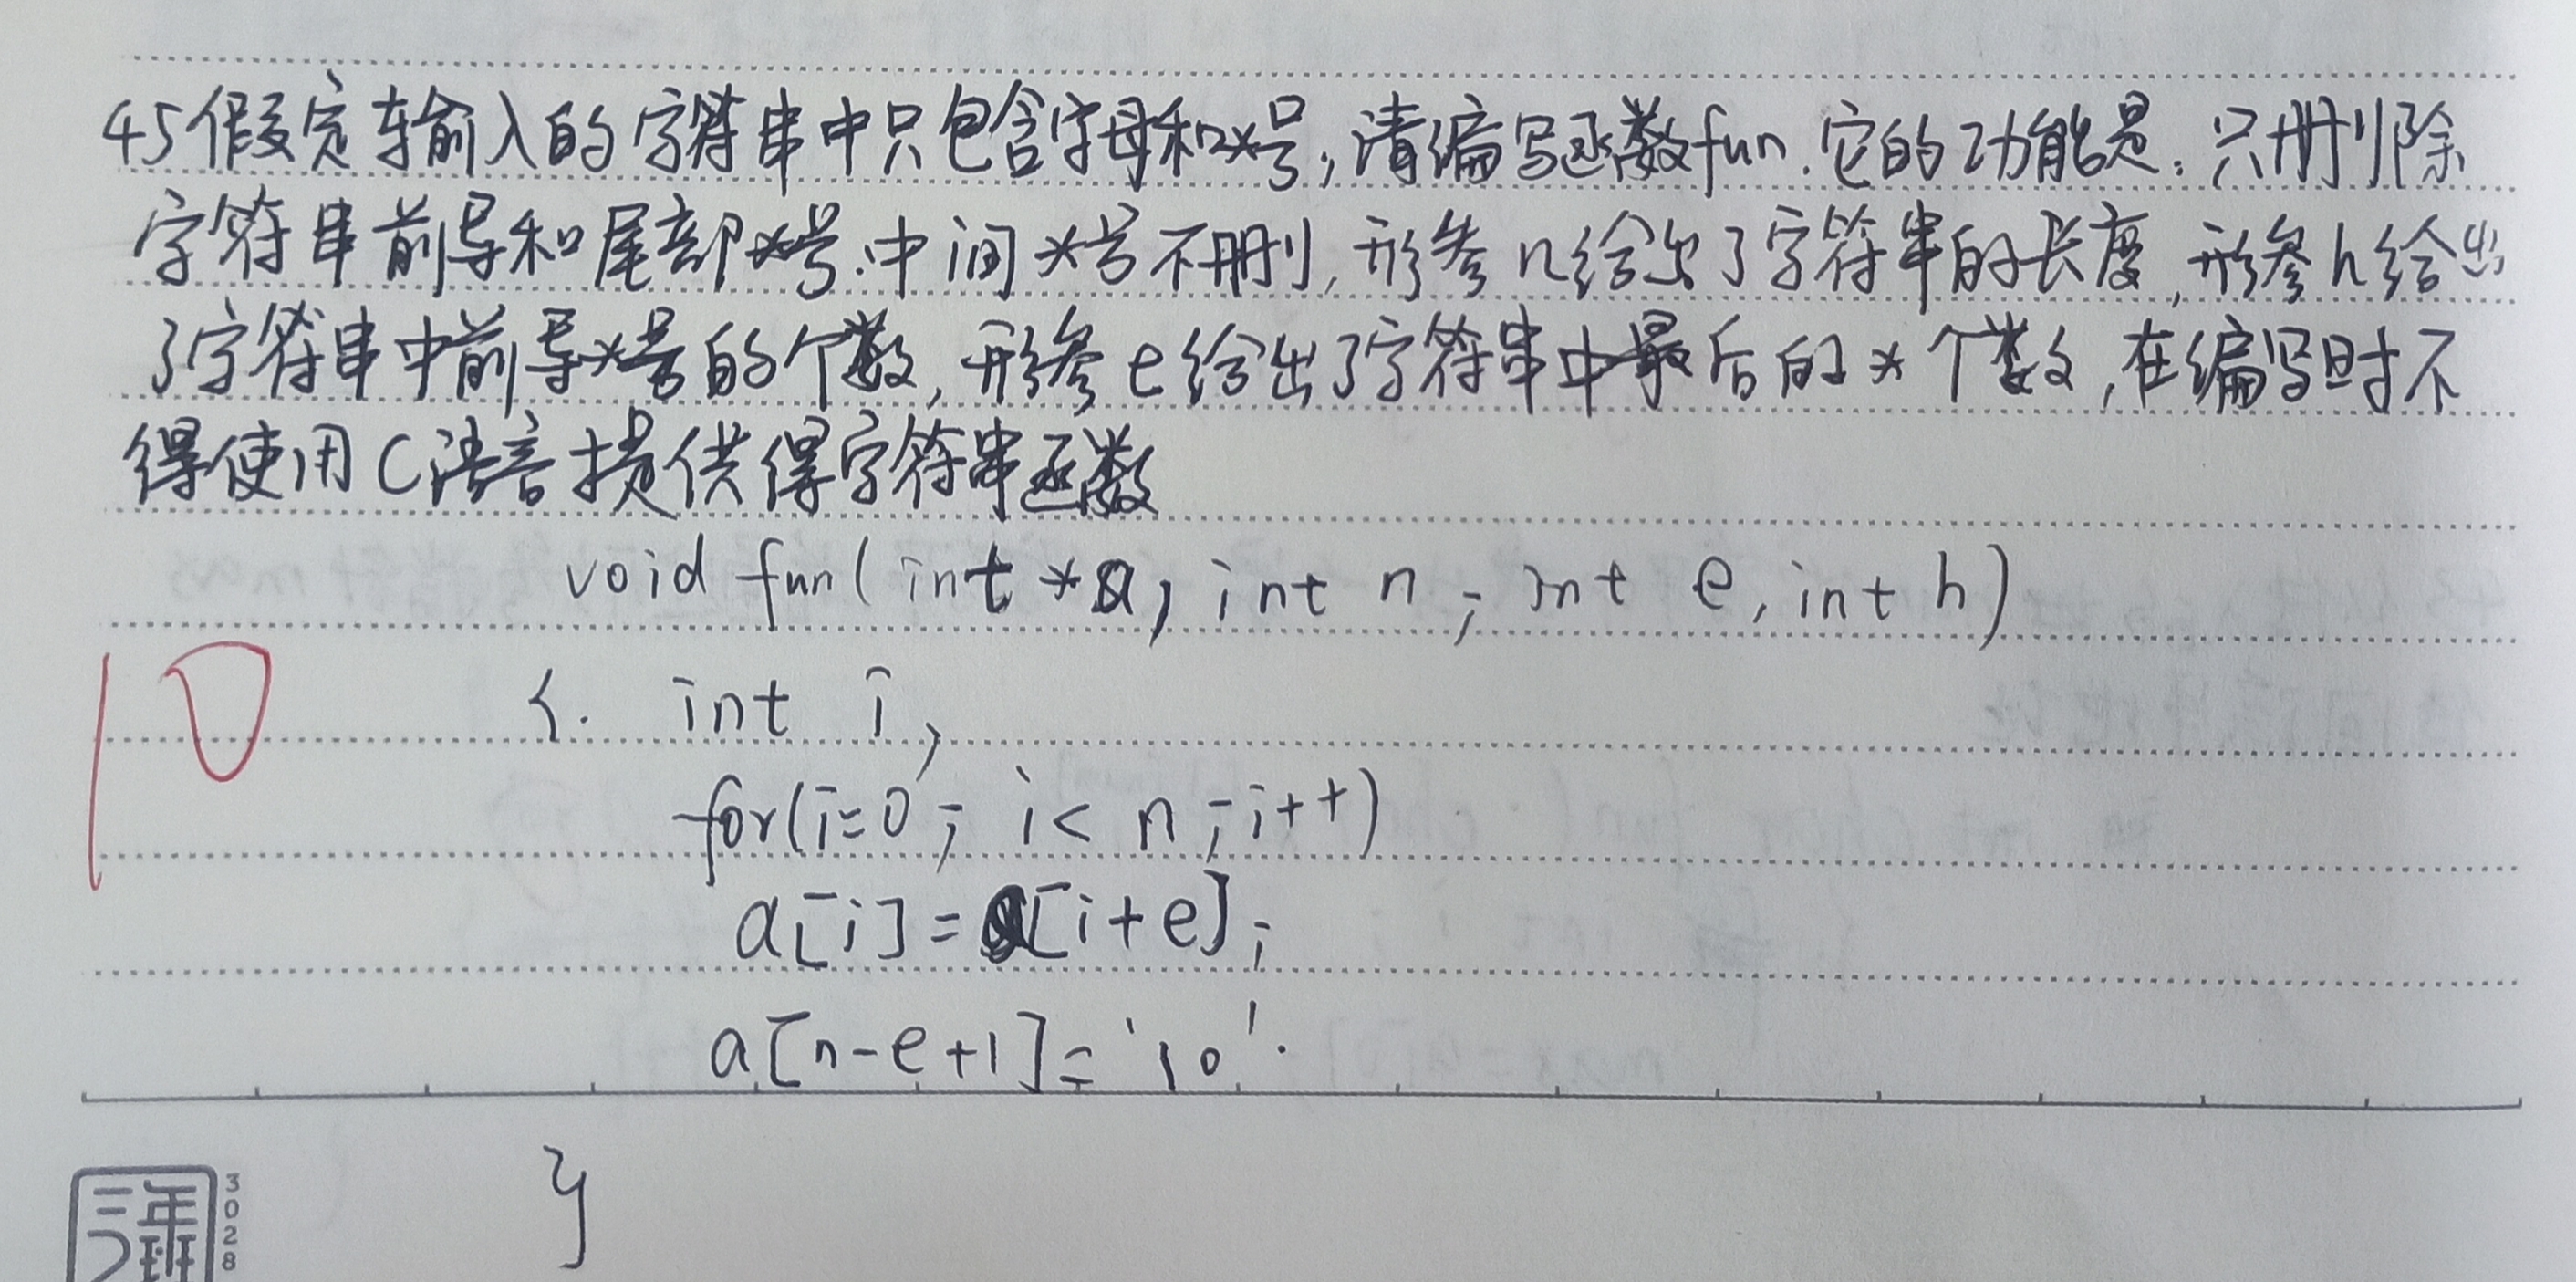 45假定输入的字符串中只包含字母和*号,请编写函数fun.它的功能是:只删除
字符串前导和尾部*号.中间*号不删,形参n给出了字符串的长度,形参h给出
了字符串中前导*号的个数,形参e给出了字符串中最后的*个数,在编写时不
得使用C语言提供得字符串函数
void fun(int *a, int n; int e, int h)
10
{. int i,
for(i=0; i< n; i++)
a[i]=a[i+e];
a[n-e+1]='\0'.
}
三年
3028